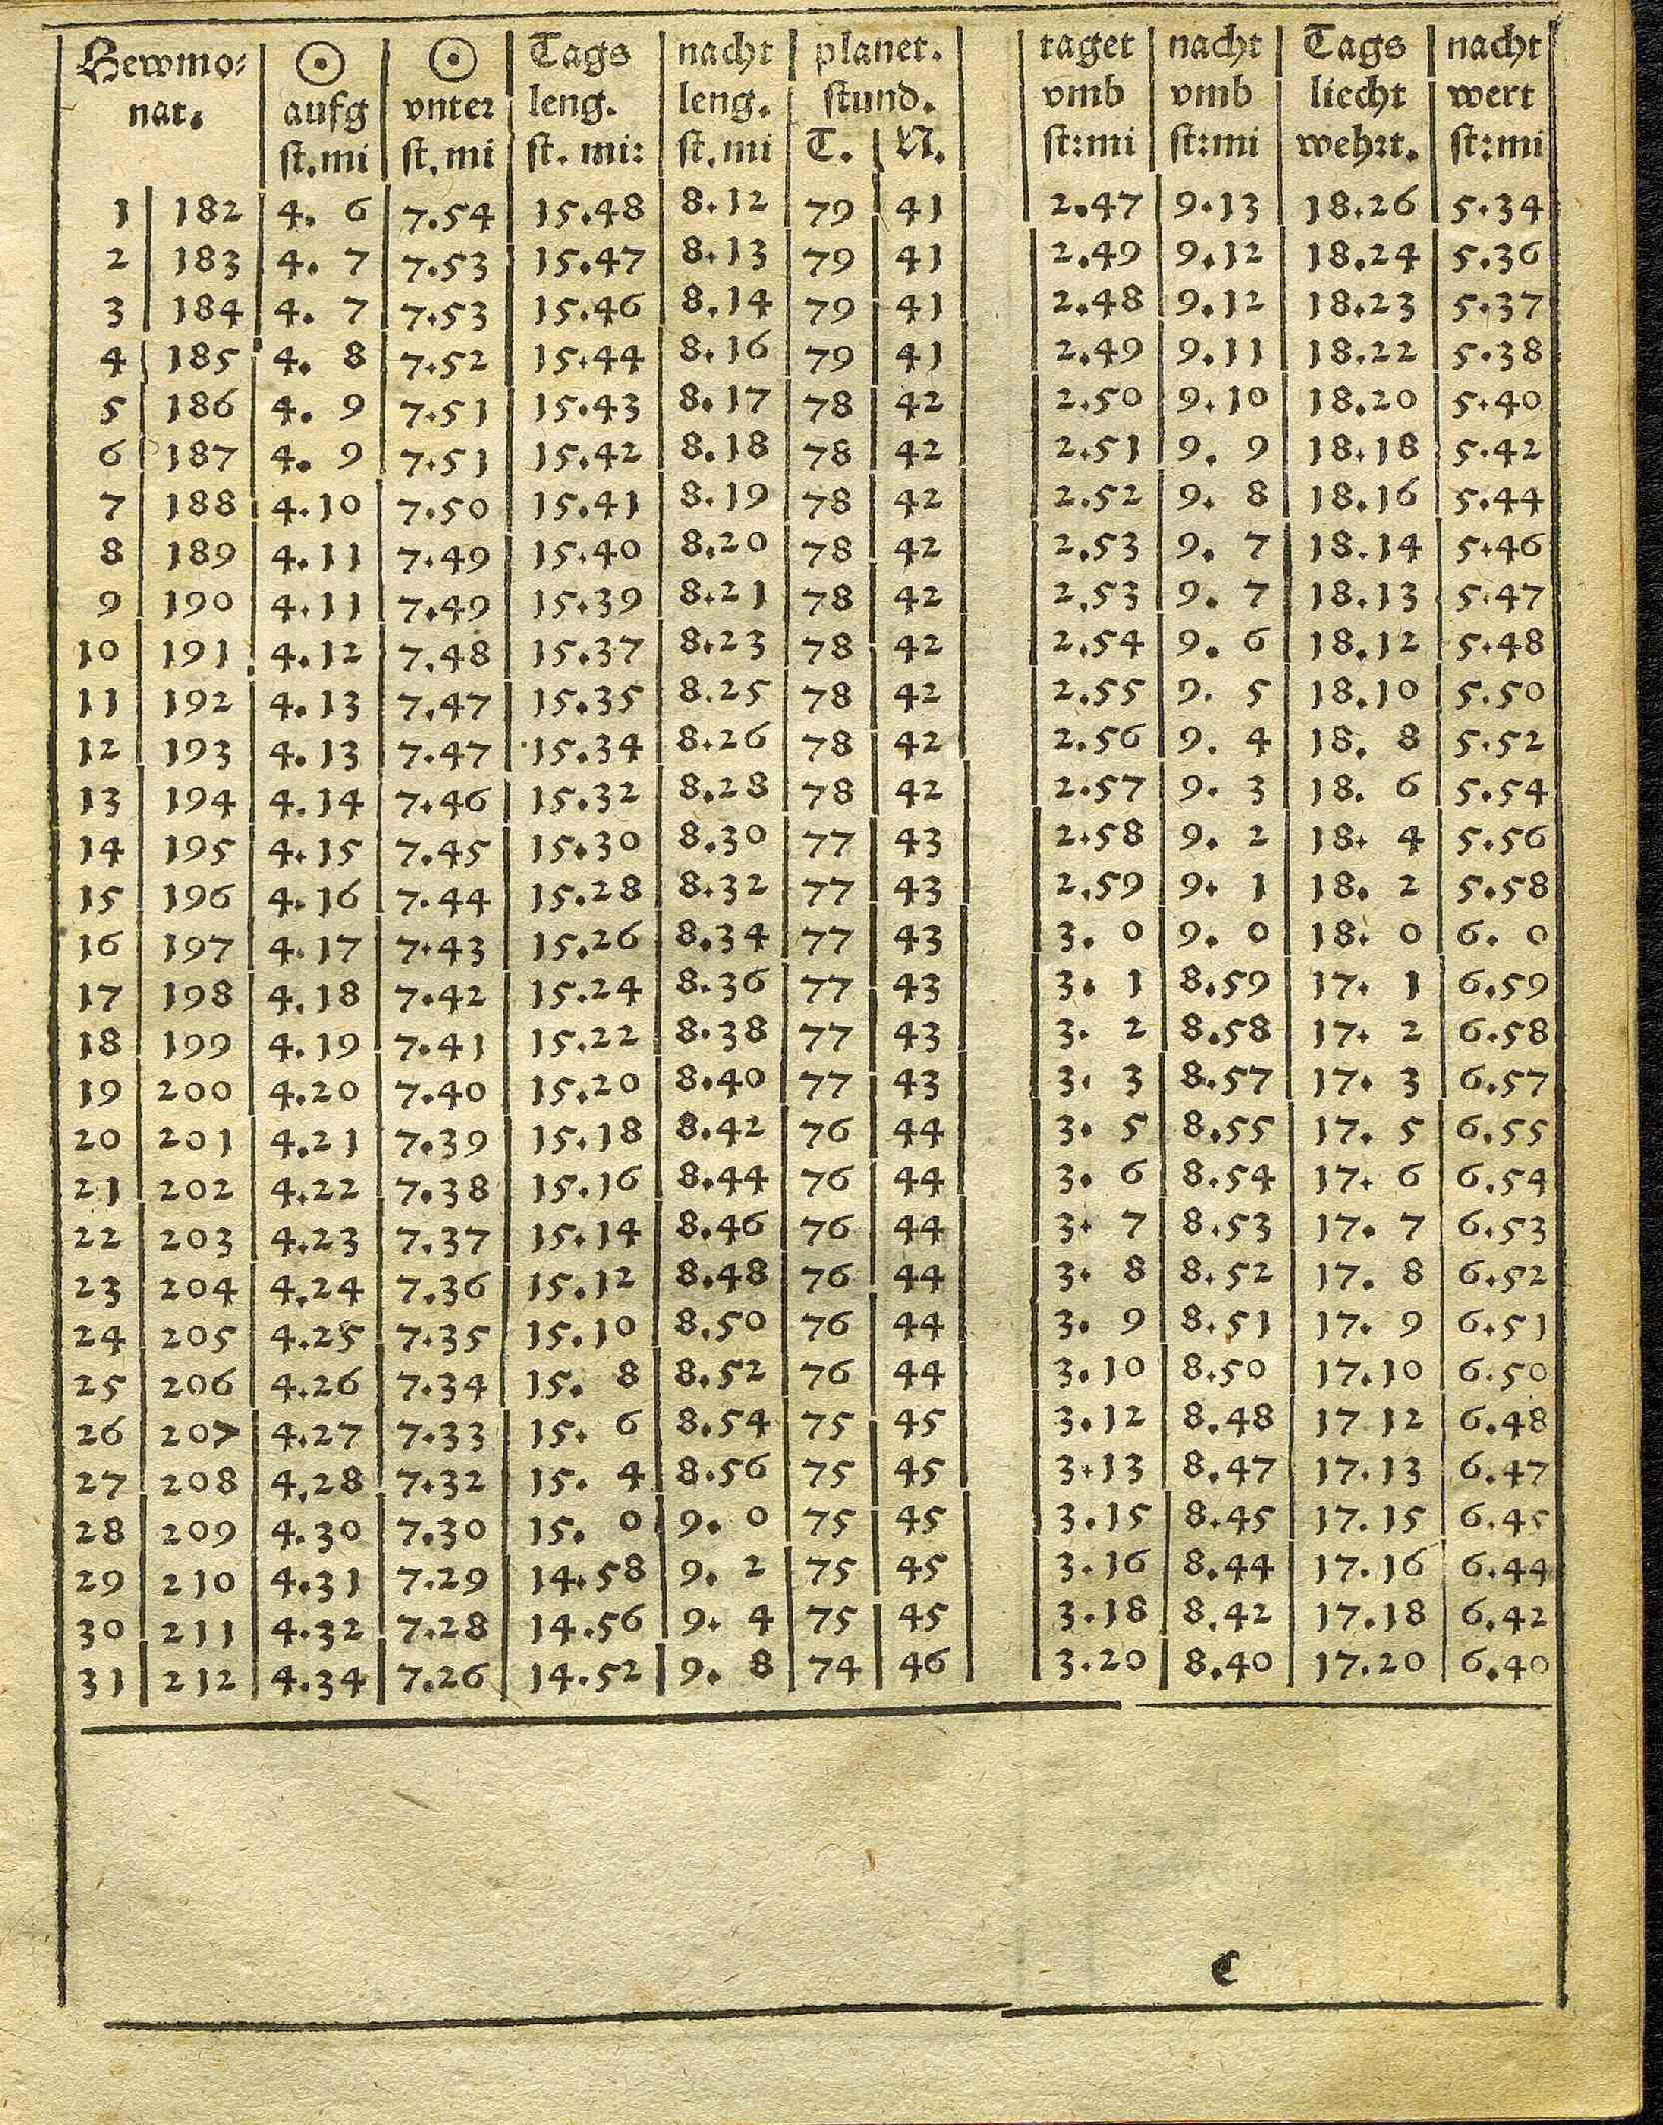 Hewmo: ☉ ☉ Tags nacht planet. taget nacht Tags nacht
nat. aufg vnter leng. leng. stund. vmb vmb liecht wert
st.mi st.mi st. mi: st.mi T. N. st:mi st:mi wehrt. st:mi
1 182 4. 6 7.54 15.48 8.12 79 41 2.47 9.13 18.26 5.34
2 183 4. 7 7.53 15.47 8.13 79 41 2.49 9.12 18.24 5.36
3 184 4. 7 7.53 15.46 8.14 79 41 2.48 9.12 18.23 5.37
4 185 4. 8 7.52 15.44 8.16 79 41 2.49 9.11 18.22 5.38
5 186 4. 9 7.51 15.43 8.17 78 42 2.50 9.10 18.20 5.40
6 187 4. 9 7.51 15.42 8.18 78 42 2.51 9. 9 18.18 5.42
7 188 4.10 7.50 15.41 8.19 78 42 2.52 9. 8 18.16 5.44
8 189 4.11 7.49 15.40 8.20 78 42 2.53 9. 7 18.14 5.46
9 190 4.11 7.49 15.39 8.21 78 42 2.53 9. 7 18.13 5.47
10 191 4.12 7.48 15.37 8.23 78 42 2.54 9. 6 18.12 5.48
11 192 4.13 7.47 15.35 8.25 78 42 2.55 9. 5 18.10 5.50
12 193 4.13 7.47 15.34 8.26 78 42 2.56 9. 4 18. 8 5.52
13 194 4.14 7.46 15.32 8.28 78 42 2.57 9. 3 18. 6 5.54
14 195 4.15 7.45 15.30 8.30 77 43 2.58 9. 2 18. 4 5.56
15 196 4.16 7.44 15.28 8.32 77 43 2.59 9. 1 18. 2 5.58
16 197 4.17 7.43 15.26 8.34 77 43 3. 0 9. 0 18. 0 6. 0
17 198 4.18 7.42 15.24 8.36 77 43 3. 1 8.59 17. 1 6.59
18 199 4.19 7.41 15.22 8.38 77 43 3. 2 8.58 17. 2 6.58
19 200 4.20 7.40 15.20 8.40 77 43 3. 3 8.57 17. 3 6.57
20 201 4.21 7.39 15.18 8.42 76 44 3. 5 8.55 17. 5 6.55
21 202 4.22 7.38 15.16 8.44 76 44 3. 6 8.54 17. 6 6.54
22 203 4.23 7.37 15.14 8.46 76 44 3. 7 8.53 17. 7 6.53
23 204 4.24 7.36 15.12 8.48 76 44 3. 8 8.52 17. 8 6.52
24 205 4.25 7.35 15.10 8.50 76 44 3. 9 8.51 17. 9 6.51
25 206 4.26 7.34 15. 8 8.52 76 44 3.10 8.50 17.10 6.50
26 207 4.27 7.33 15. 6 8.54 75 45 3.12 8.48 17 12 6.48
27 208 4.28 7.32 15. 4 8.56 75 45 3.13 8.47 17.13 6.47
28 209 4.30 7.30 15. 0 9. 0 75 45 3.15 8.45 17.15 6.45
29 210 4.31 7.29 14.58 9. 2 75 45 3.16 8.44 17.16 6.44
30 211 4.32 7.28 14.56 9. 4 75 45 3.18 8.42 17.18 6.42
31 212 4.34 7.26 14.52 9. 8 74 46 3.20 8.40 17.20 6.40
C